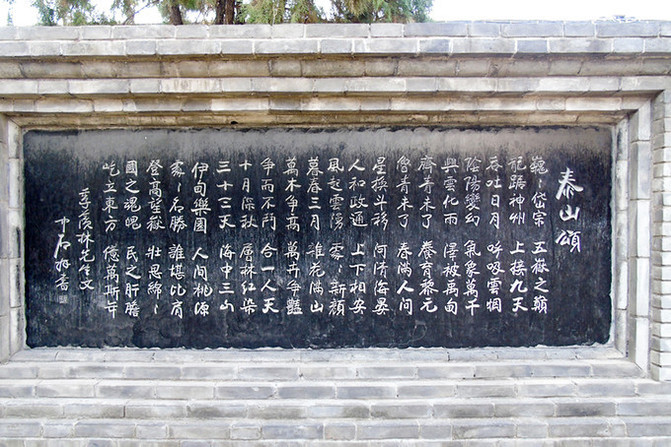 泰山頌
巍〻岱宗 五嶽之巔
雄踞神州 上接九天
吞吐日月 呼吸雲烟
陰陽變幻 氣象萬千
興雲化雨 澤被萬甸
齊青未了 養育黎元
魯青未了 春滿人間
星換斗移 河清海晏
人和政通 上下相安
風起雲湧 處〻新顏
暮春三月 雜花滿山
萬木爭高 萬卉爭豔
爭而不鬥 合一人天
十月深秋 層林紅染
三十三天 海中三山
伊甸樂園 人間桃源
處〻名勝 誰堪比肩
登高望嶽 壯思綿〻
國之魂魄 民之肝膽
屹立東方 億萬斯年
季羨林先生文
中石拜書